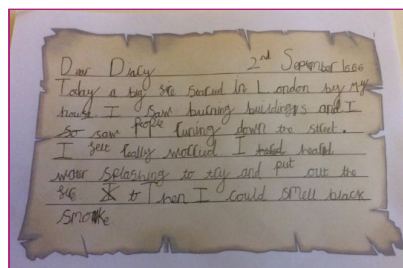 Dear Diary 2nd September 1666
Today a big fire started in London by my
house I saw burning buildings and I
so saw people runing down the street.
I felt really worried I heard
water splashing to try and put out the
fire to Then I could smell black
smoke